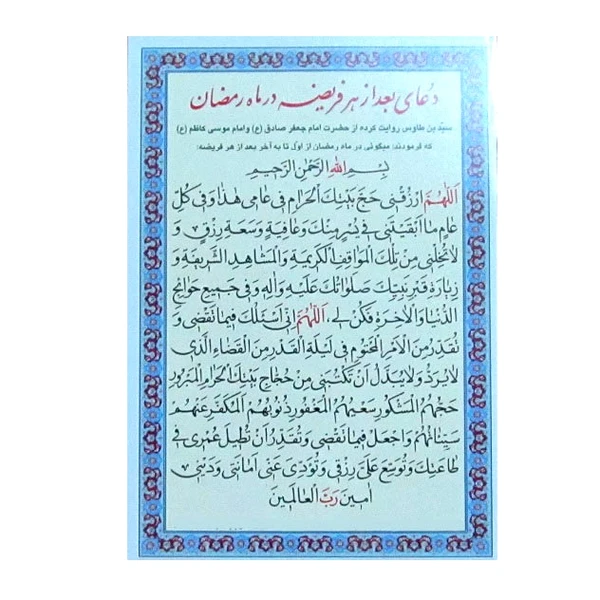 دعای بعد از هر فریضه در ماه رمضان
سید بن طاوس روایت کرده از حضرت امام جعفر صادق (ع) و امام موسی کاظم (ع)
که فرمودند: میگوئی در ماه رمضان از اول تا به آخر بعد از هر فریضه:
بِسْمِ اللهِ الرَّحْمٰنِ الرَّحیمِ
اَللّٰهُمَّ ارْزُقْنی حَجَّ بَیْتِكَ الْحَرامِ فی عامی هٰذا وَ فی كُلِّ
عامٍ ما اَبْقَیْتَنی فی یُسْرٍ مِنْكَ وَ عافِیَةٍ وَسَعَةِ رِزْقٍ وَ
لا تُخْلِنی مِنْ تِلْكَ الْمَواقِفِ الْكَریمَةِ وَ الْمَشاهِدِ الشَّریفَةِ وَ
زِیارَةِ قَبْرِ نَبِیِّكَ صَلَواتُكَ عَلَیْهِ وَ الِهِ وَ فی جَمیعِ حَوائِجِ
الدُّنْیا وَ الْاٰخِرَةِ فَكُنْ لی، اَللّٰهُمَّ اِنّی اَسْئَلُكَ فیما تَقْضی وَ
تُقَدِّرُ مِنَ الْاَمْرِ الْمَحْتُومِ فی لَیْلَةِ الْقَدْرِ مِنَ الْقَضاءِ الَّذی
لا یُرَدُّ وَ لا یُبَدَّلُ اَنْ تَكْتُبَنی مِنْ حُجّاجِ بَیْتِكَ الْحَرامِ الْمَبْرُورِ
حَجُّهُمُ الْمَشْكُورِ سَعْیُهُمُ الْمَغْفُورِ ذُنُوبُهُمُ الْمُكَفَّرِ عَنْهُمْ
سَیِّئاتُهُمْ وَ اجْعَلْ فیما تَقْضی وَ تُقَدِّرُ اَنْ تُطیلَ عُمْری فی
طاعَتِكَ وَ تُوَسِّعَ عَلَیَّ رِزْقی وَ تُؤَدِّیَ عَنّی اَمانَتی وَ دَیْنی
اٰمینَ رَبَّ الْعالَمینَ